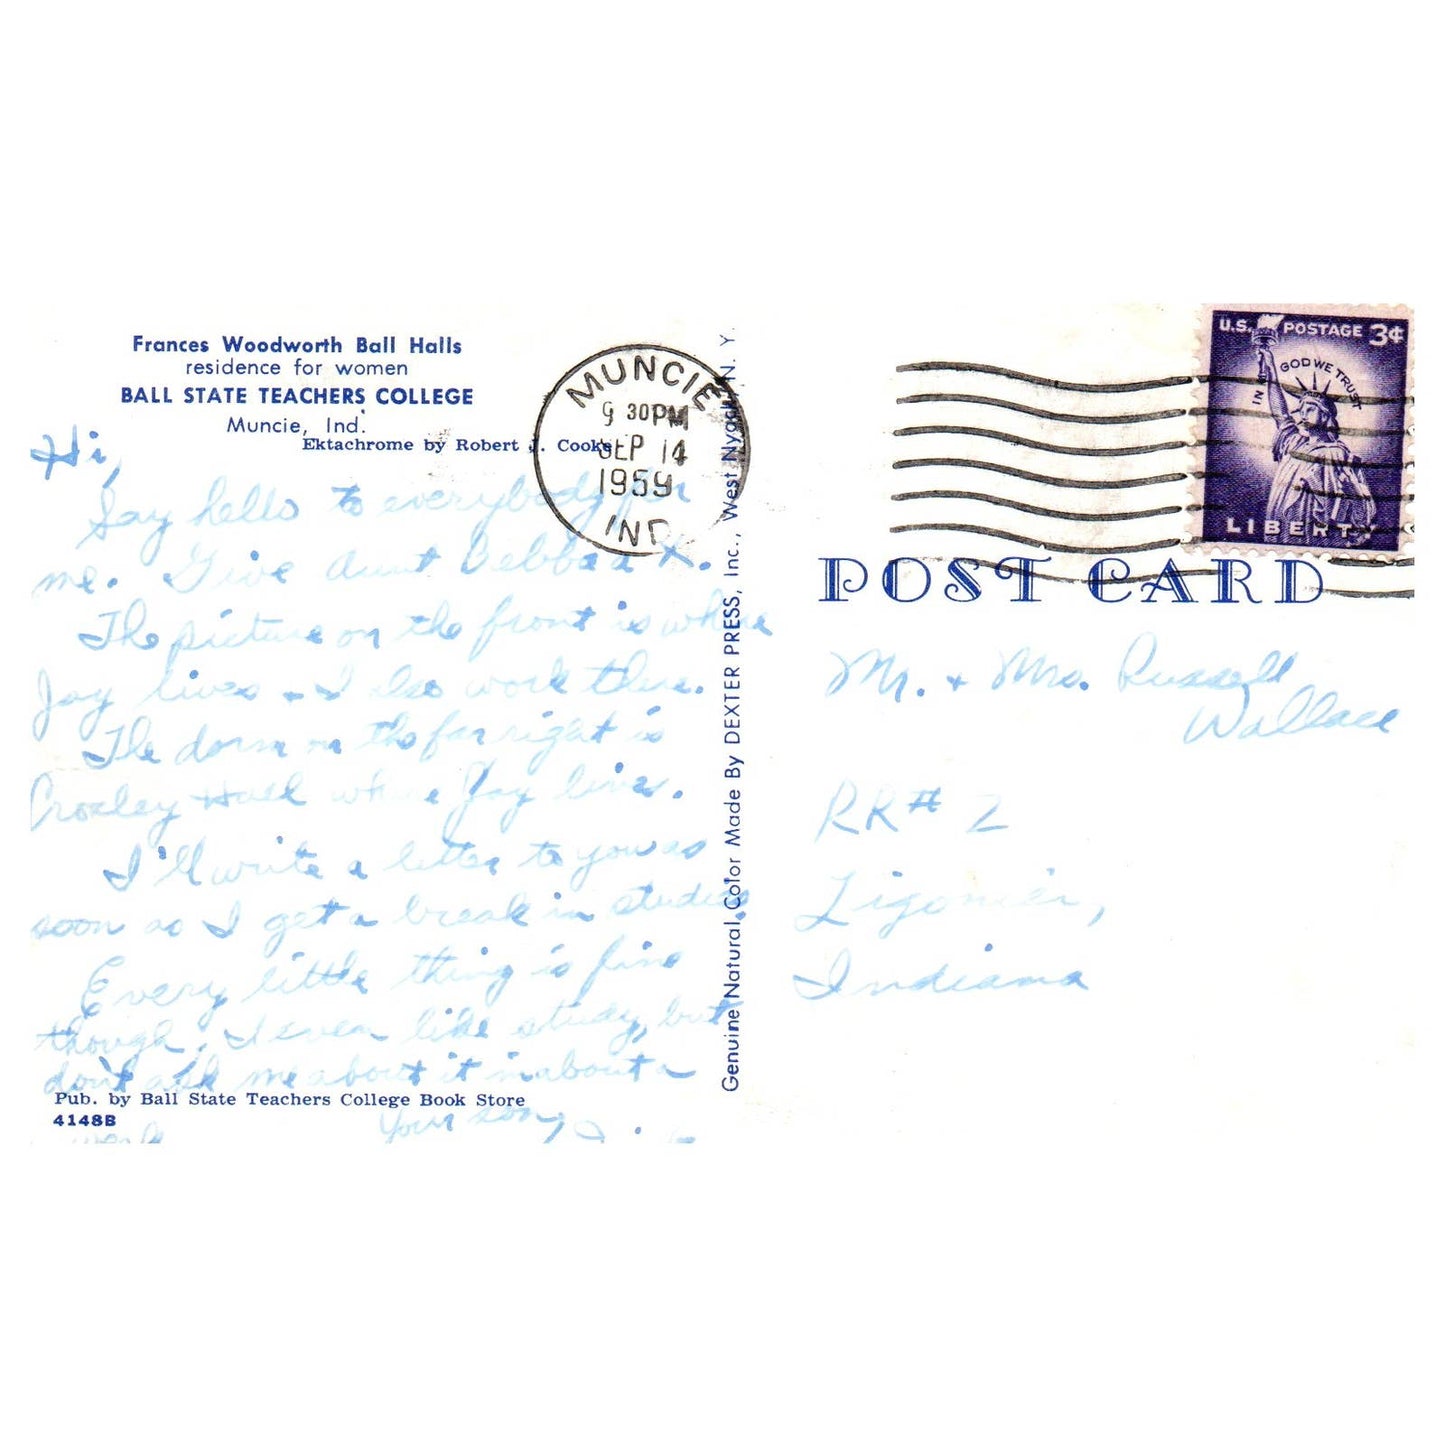 Frances Woodworth Ball Halls
residence for women
BALL STATE TEACHERS COLLEGE
Muncie, Ind.
Ektachrome by Robert J. Cooke
Hi,
Say hello to everybody for
me. Give Aunt Bebba a X.
The picture on the front is where
Jay lives - I also work there.
The dorm on the far right is
Croxley Hall where Jay lives.
I'll write a letter to you as
soon as I get a break in studies.
Every little thing is fine
though. I even like study, but
don't ask me about it in about a
week
Your son,
Pub. by Ball State Teachers College Book Store
4148B
Genuine Natural Color Made By DEXTER PRESS, Inc., West Nyack, N. Y.
MUNCIE
9 30PM
SEP 14
1959
IND.
U.S. POSTAGE 3¢
IN GOD WE TRUST
LIBERTY
POST CARD
Mr. + Mrs. Russell
Wallace
RR# 2
Ligonier,
Indiana